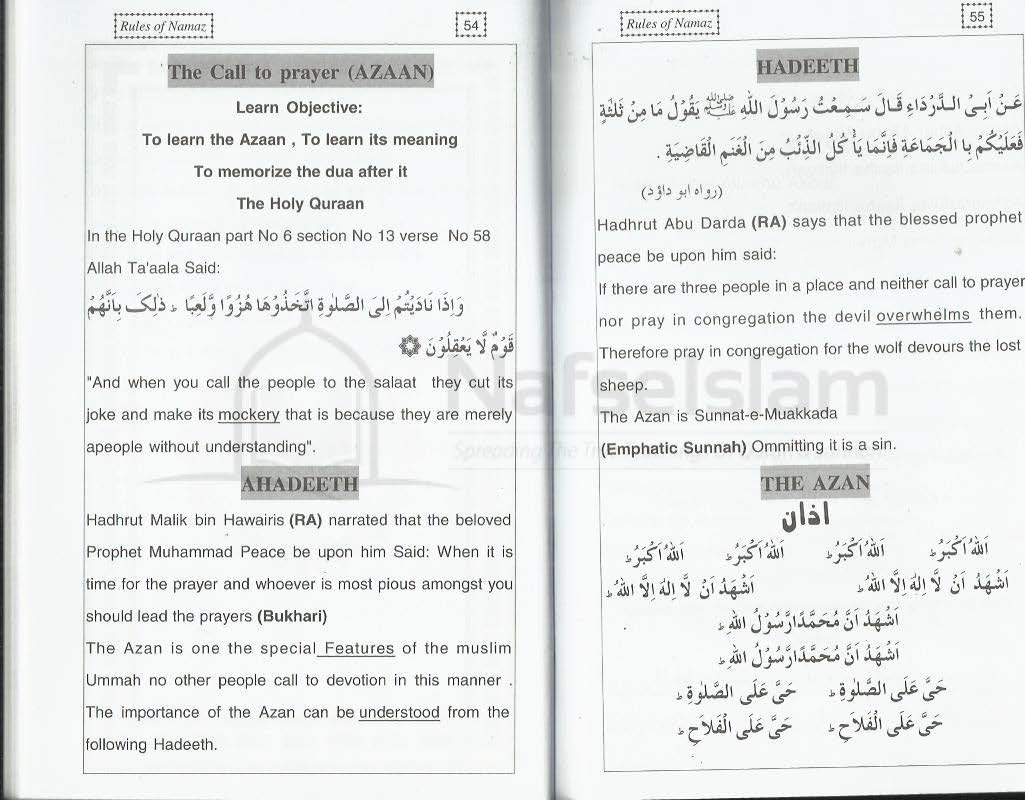 Rules of Namaz
54
The Call to prayer (AZAAN)
Learn Objective:
To learn the Azaan , To learn its meaning
To memorize the dua after it
The Holy Quraan
In the Holy Quraan part No 6 section No 13 verse No 58
Allah Ta'aala Said:
وَاِذَا نَادَيْتُمْ اِلَى الصَّلٰوةِ اتَّخَذُوْهَا هُزُوًا وَّلَعِبًا ؕ ذٰلِكَ بِاَنَّهُمْ
قَوْمٌ لَّا يَعْقِلُوْنَ
"And when you call the people to the salaat they cut its
joke and make its mockery that is because they are merely
apeople without understanding".
AHADEETH
Hadhrut Malik bin Hawairis (RA) narrated that the beloved
Prophet Muhammad Peace be upon him Said: When it is
time for the prayer and whoever is most pious amongst you
should lead the prayers (Bukhari)
The Azan is one the special Features of the muslim
Ummah no other people call to devotion in this manner .
The importance of the Azan can be understood from the
following Hadeeth.
Rules of Namaz
55
HADEETH
عَنْ اَبِىْ الدَّرْدَاءِ قَالَ سَمِعْتُ رَسُوْلَ اللّٰهِ ﷺ يَقُوْلُ مَا مِنْ ثَلٰثَةٍ
فَعَلَيْكُمْ بِا لْجَمَاعَةِ فَاِنَّمَا يَأْ كُلُ الذِّئْبُ مِنَ الْغَنَمِ الْقَاضِيَةِ .
(رواه ابو داؤد)
Hadhrut Abu Darda (RA) says that the blessed prophet
peace be upon him said:
If there are three people in a place and neither call to prayer
nor pray in congregation the devil overwhelms them.
Therefore pray in congregation for the wolf devours the lost
sheep.
The Azan is Sunnat-e-Muakkada
(Emphatic Sunnah) Ommitting it is a sin.
THE AZAN
اذان
اَللّٰهُ اَكْبَرُ ؕ اَللّٰهُ اَكْبَرُ ؕ اَللّٰهُ اَكْبَرُ ؕ اَللّٰهُ اَكْبَرُ ؕ
اَشْهَدُ اَنْ لَّا اِلٰهَ اِلَّا اللّٰهُ ؕ اَشْهَدُ اَنْ لَّا اِلٰهَ اِلَّا اللّٰهُ ؕ
اَشْهَدُ اَنَّ مُحَمَّدًا رَّسُوْلُ اللّٰهِ ؕ
اَشْهَدُ اَنَّ مُحَمَّدًا رَّسُوْلُ اللّٰهِ ؕ
حَىَّ عَلَى الصَّلٰوةِ ؕ حَىَّ عَلَى الصَّلٰوةِ ؕ
حَىَّ عَلَى الْفَلَاحِ ؕ حَىَّ عَلَى الْفَلَاحِ ؕ
NafseIslam